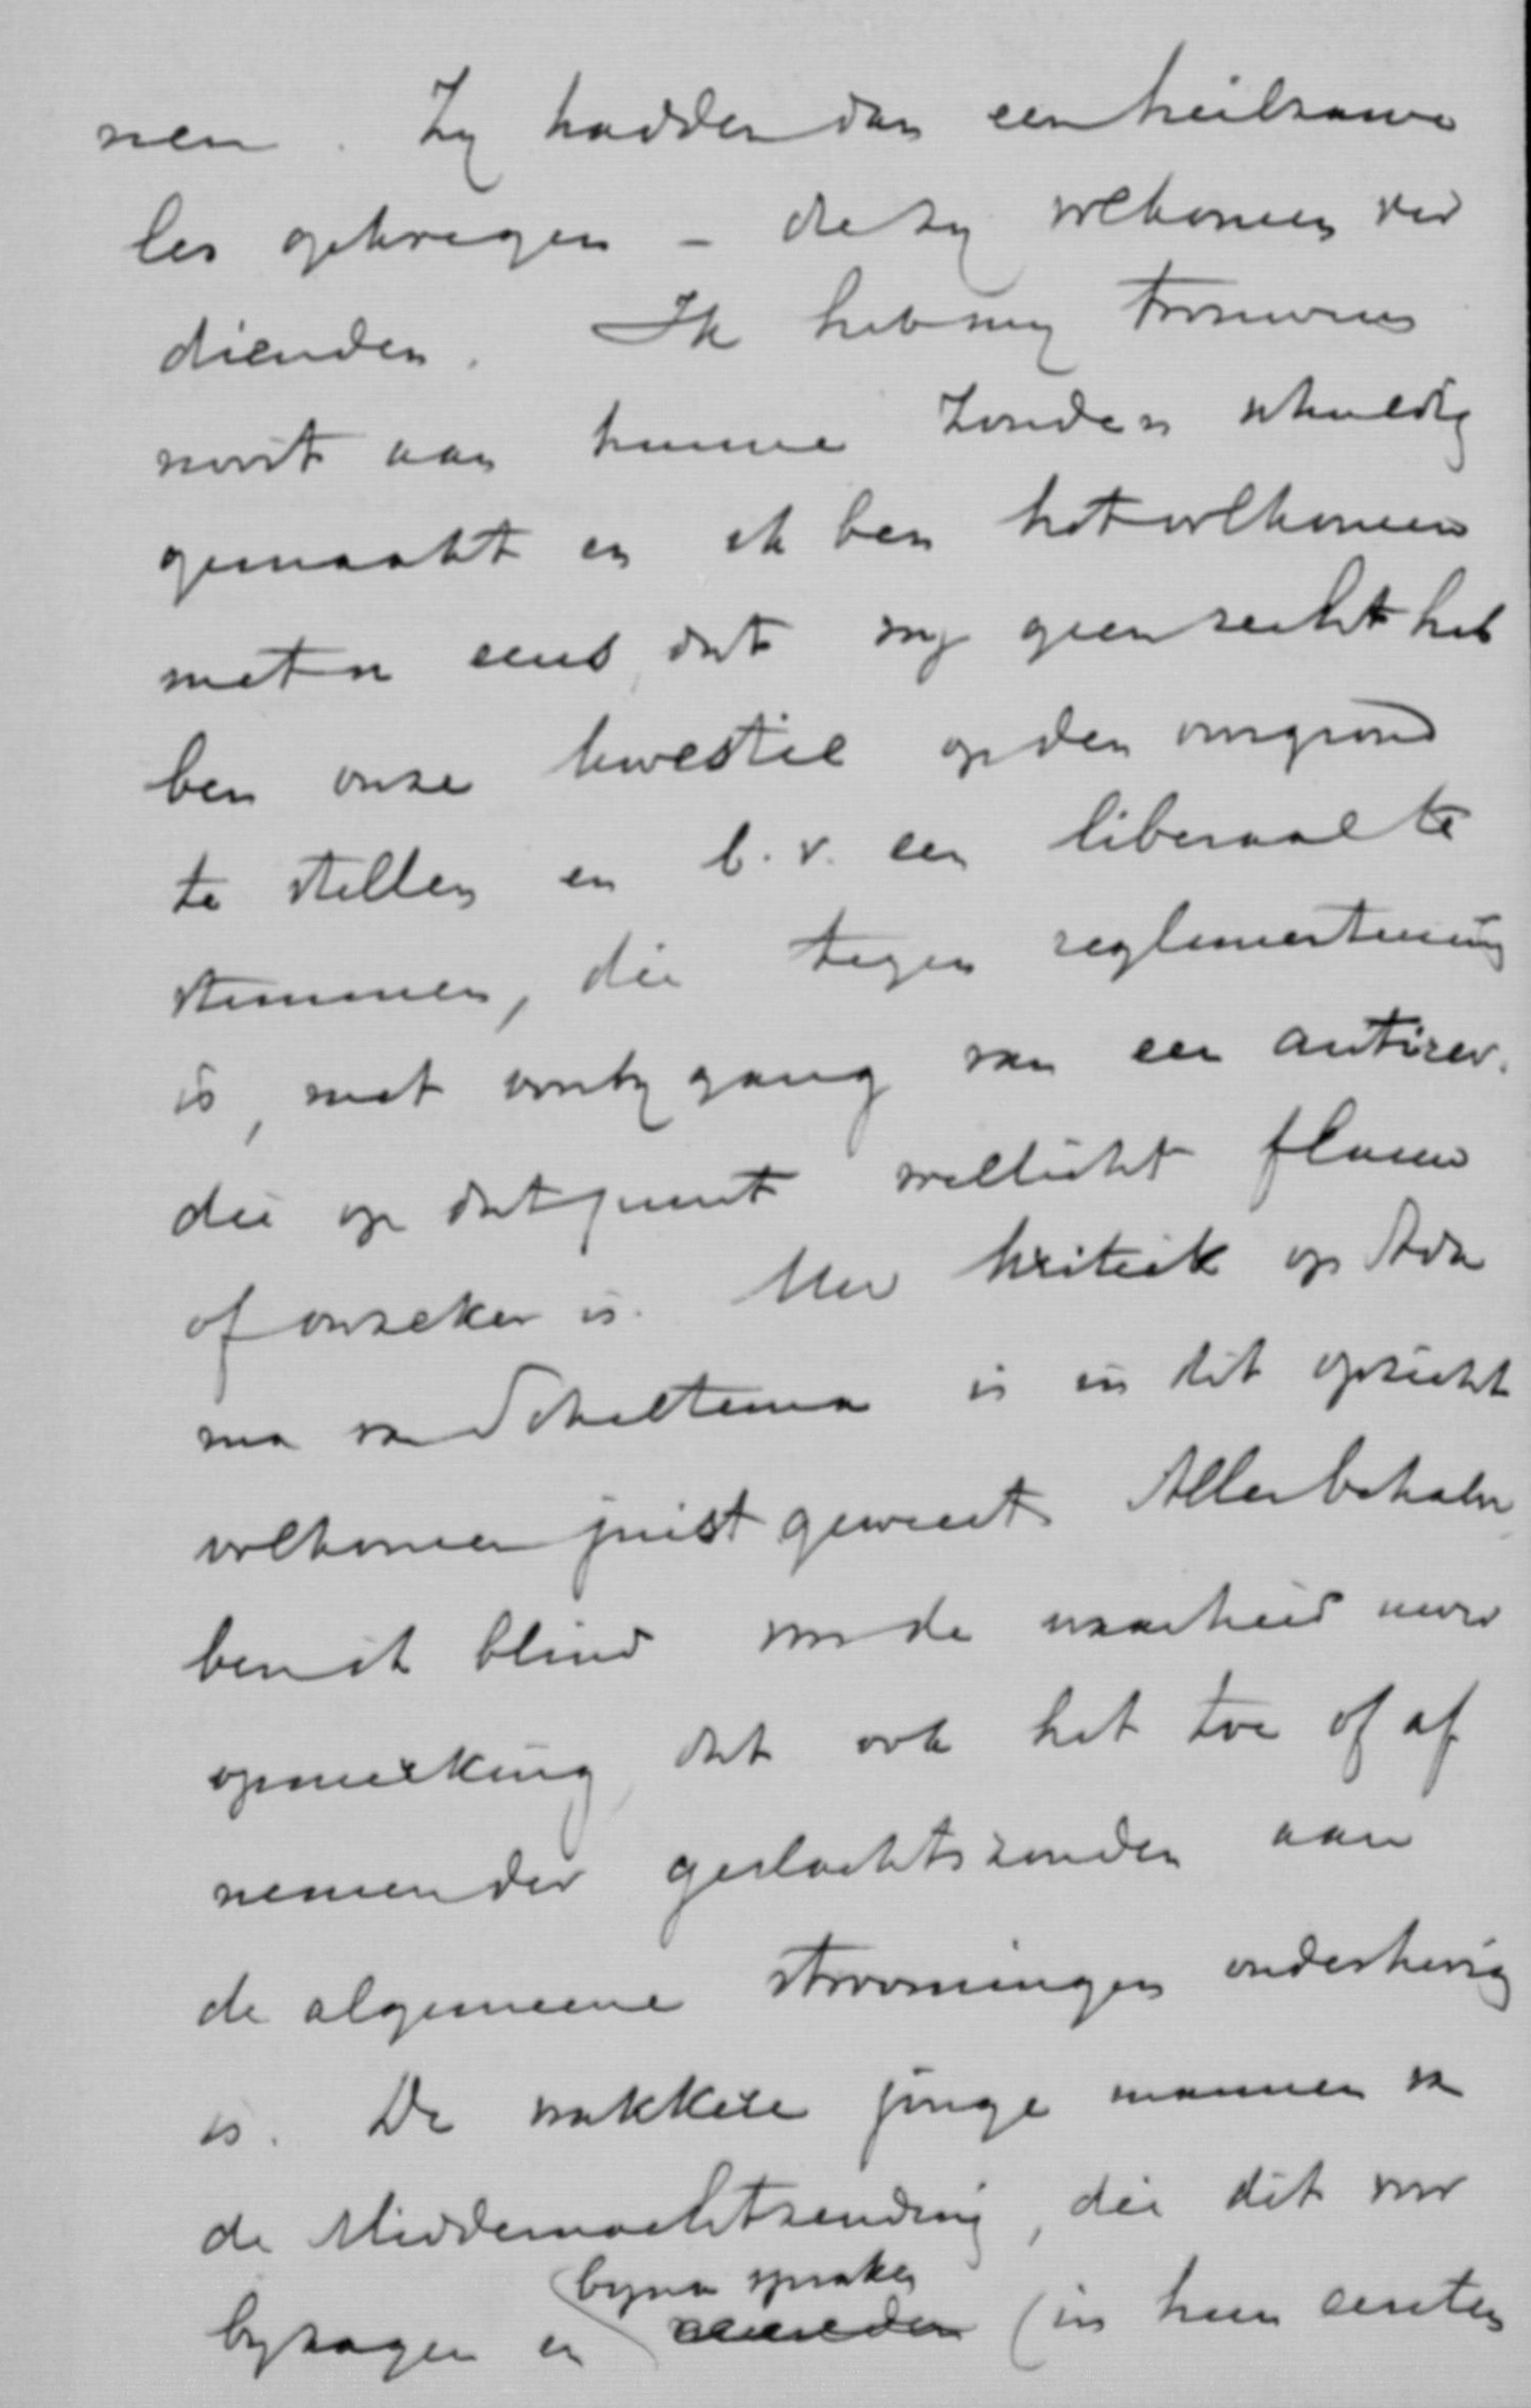 nen. Zij hadden dan een heilzame
les gekregen - die zij volkomen ver
dienden. Ik heb mij trouwens
nooit aan hunne zonden schuldig
gemaakt en ik ben het volkomen
met u eens, dat wij geen recht heb
ben onze kwestie op den voorgrond
te stellen en b.v. een liberaal te
stemmen, die tegen reglementeering
is, met voorbijgang van een antirev.
die op dat punt wellicht flauw
of onzeker is. Uw kritiek op Ada
ma van Scheltema is in dit opzicht
volkomen juist geweest. Allerbehalve
ben ik blind voor de waarheid uwer
opmerking, dat ook het toe of af
nemen der geslachtszonden aan
de algemeene stroomingen onderhevig
is. De wakkere jonge mannen van
de Middernachtzending, die dit voor
bijzagen en
bijna spraken
(in hun eersten